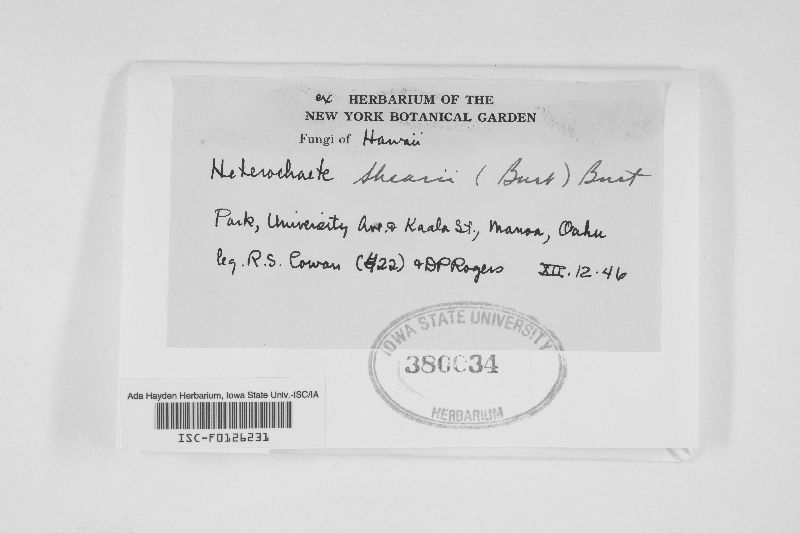 ex HERBARIUM OF THE
NEW YORK BOTANICAL GARDEN
Fungi of Hawaii
Heterochaete Shearii (Burt) Burt
Park, University Ave & Kaala St., Manoa, Oahu
leg. R.S. Cowan (#22) & DP Rogers XII. 12. 46
IOWA STATE UNIVERSITY
380034
HERBARIUM
Ada Hayden Herbarium, Iowa State Univ.-ISC/IA
ISC-F0126231